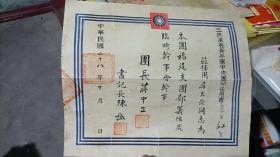 三民主義青年團中央團部任用書
茲任用
同志為
本團福建支團部籌備處
臨時幹事會幹事
團長蔣中正
書記長陳誠
中華民國二十八年十月 日